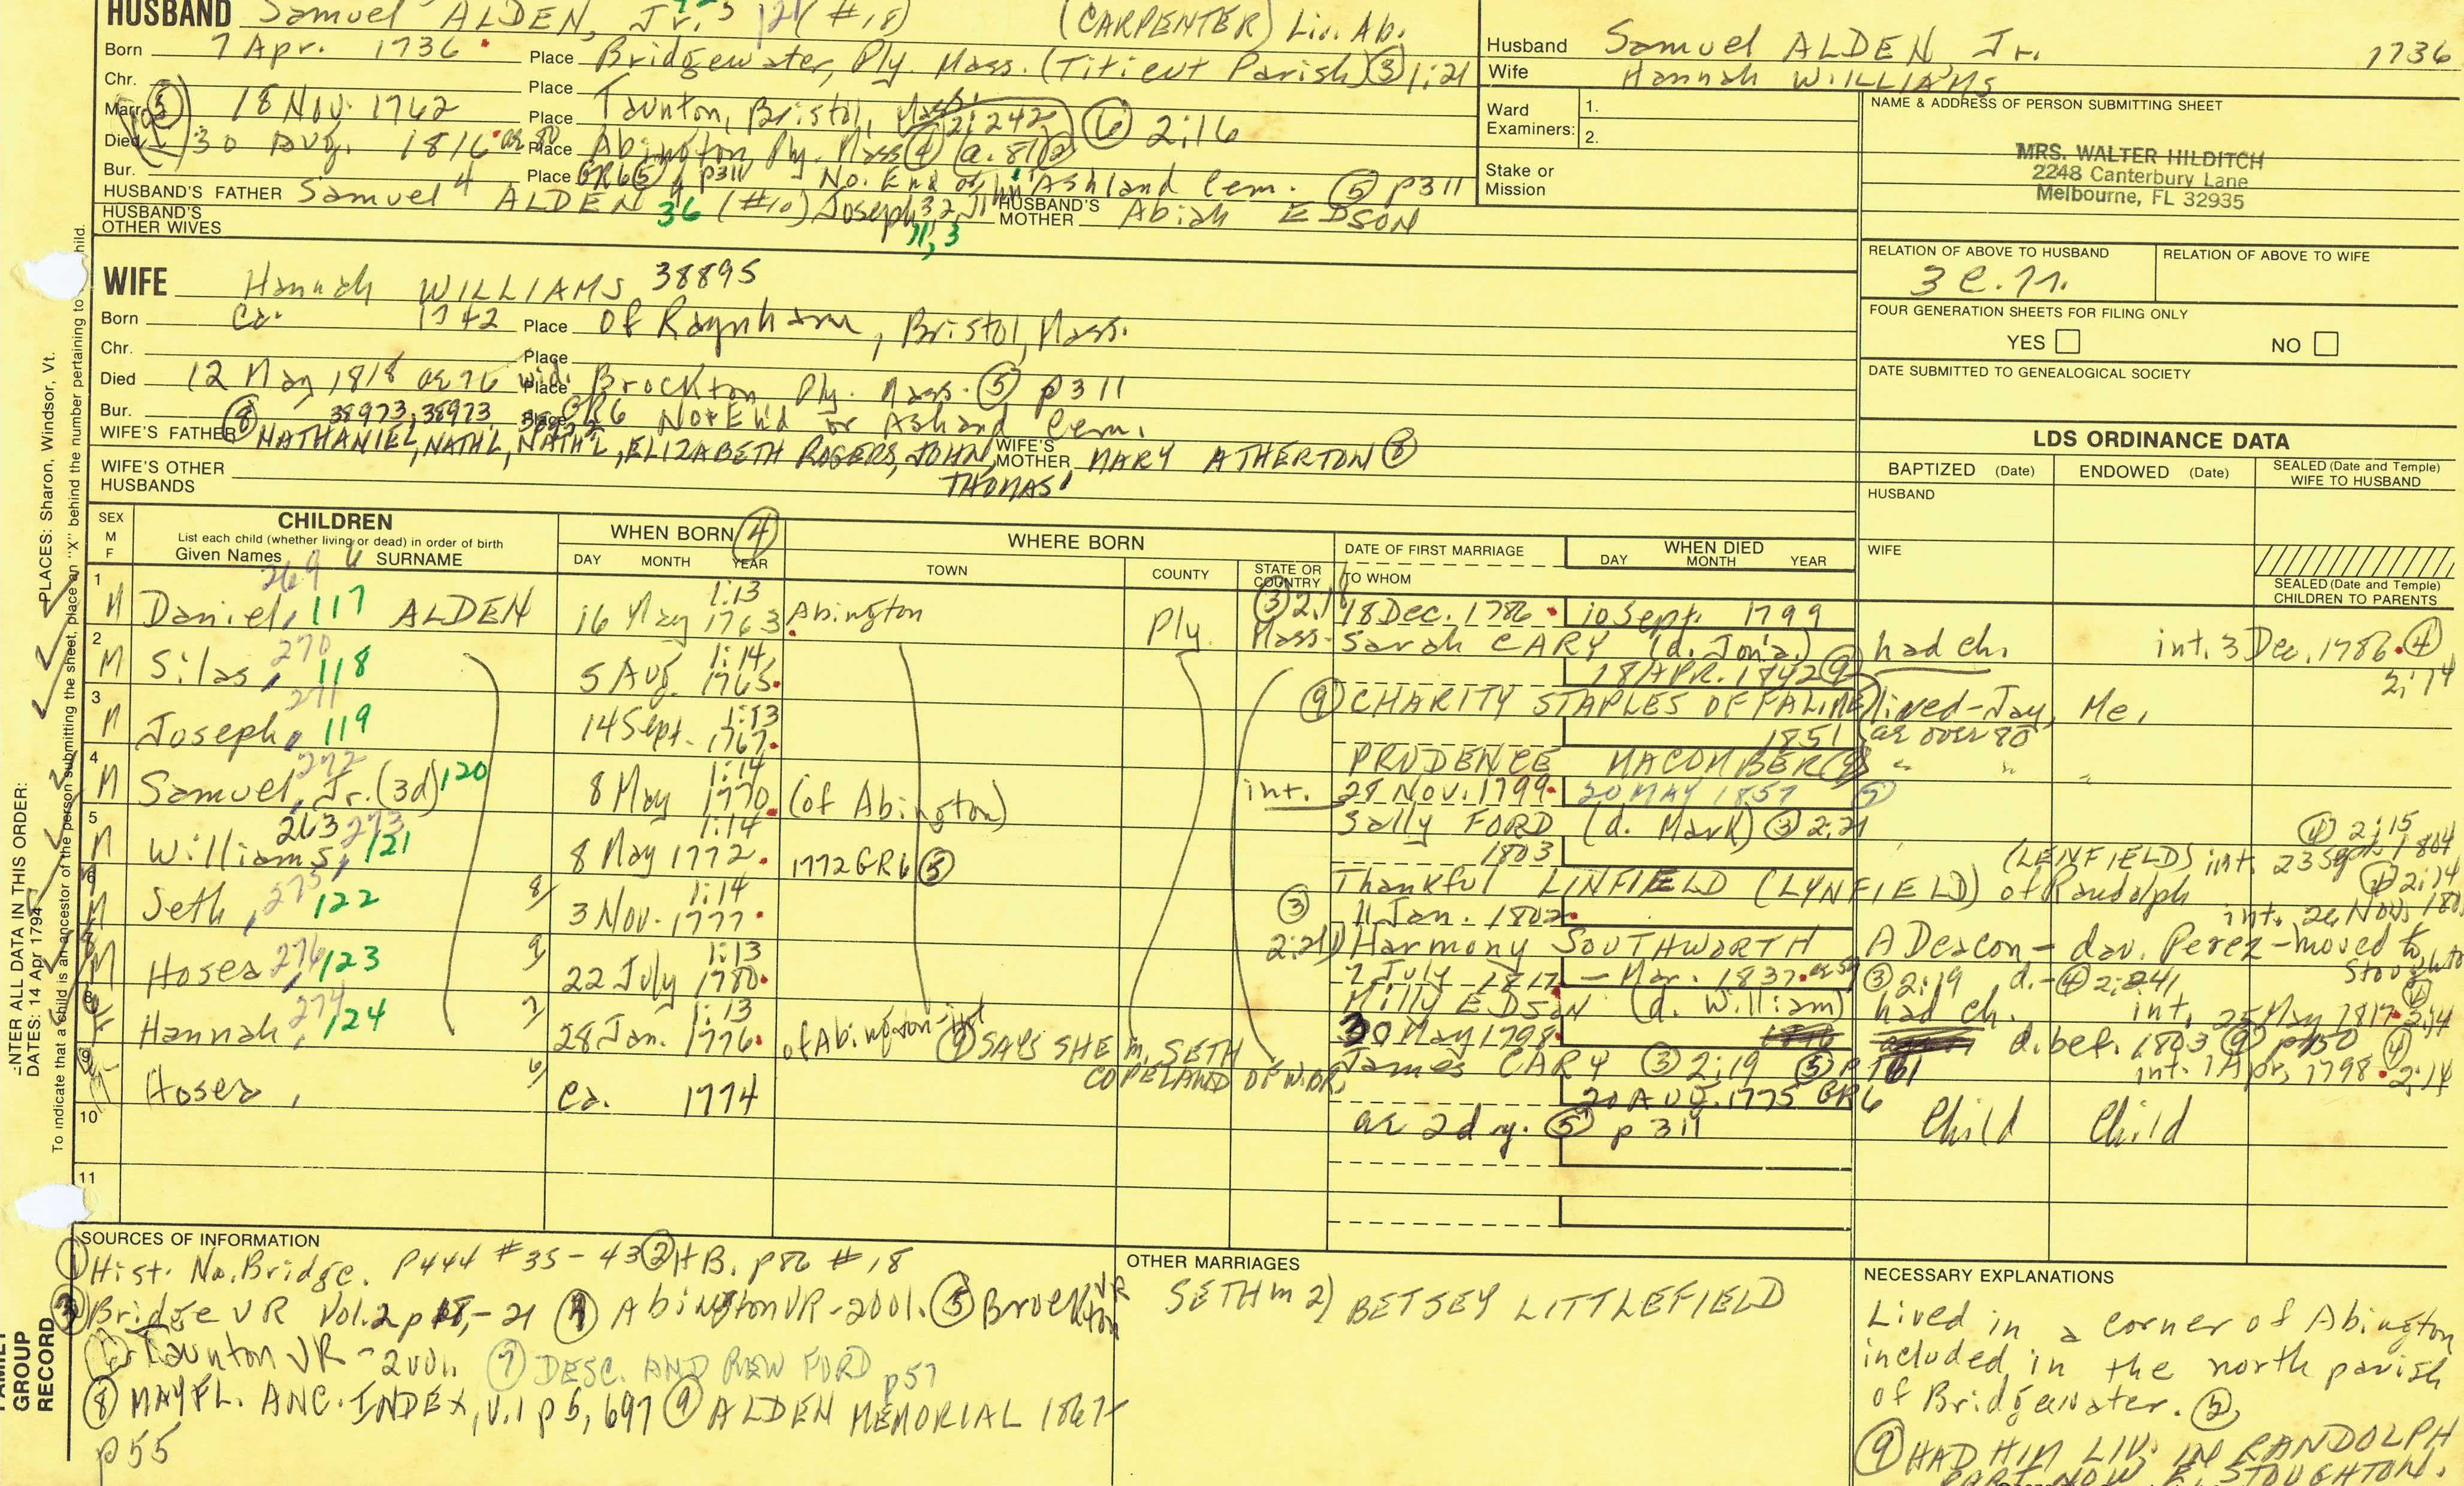 HUSBAND Samuel ALDEN, Jr. 5 121 (#18) (CARPENTER) Liv. Ab.
Born 7 Apr. 1736 Place Bridgewater, Ply. Mass. (Titicut Parish) (3) 1:21
Chr. Place
Marr. (5) 18 Nov. 1762 Place Taunton, Bristol, Mass. 2:242 (6) 2:16
Died 30 Aug. 1816 ae 80 Place Abington, Ply. Mass (4) (a. 81) 2
Bur. Place GR6 (5) p311 No. End or Ashland Cem. (5) p311
HUSBAND'S FATHER Samuel 4 ALDEN 36 (#10) Joseph 3, 2, John 1 HUSBAND'S MOTHER Abiah EDSON
11, 3
HUSBAND'S OTHER WIVES
Husband Samuel ALDEN, Jr. 1736
Wife Hannah WILLIAMS
Ward Examiners: 1.
2.
Stake or Mission
NAME & ADDRESS OF PERSON SUBMITTING SHEET
MRS. WALTER HILDITCH
2248 Canterbury Lane
Melbourne, FL 32935
RELATION OF ABOVE TO HUSBAND RELATION OF ABOVE TO WIFE
FOUR GENERATION SHEETS FOR FILING ONLY
YES NO
DATE SUBMITTED TO GENEALOGICAL SOCIETY
WIFE Hannah WILLIAMS 38895
Born ca. 1742 Place of Raynham, Bristol, Mass.
Chr. Place
Died 12 May 1818 ae 76 wid. Place Brockton Ply. Mass. (5) p311
Bur. (8) 38973, 38973 Place GR6 No. End or Ashland Cem.
WIFE'S FATHER NATHANIEL, NATH'L, NATH'L, ELIZABETH ROGERS, JOHN, THOMAS 1 WIFE'S MOTHER MARY ATHERTON (8)
WIFE'S OTHER HUSBANDS
LDS ORDINANCE DATA
BAPTIZED (Date) ENDOWED (Date) SEALED (Date and Temple) WIFE TO HUSBAND
HUSBAND
WIFE
SEALED (Date and Temple) CHILDREN TO PARENTS
SEX M F
CHILDREN
List each child (whether living or dead) in order of birth
Given Names SURNAME
WHEN BORN (4)
DAY MONTH YEAR
WHERE BORN
TOWN COUNTY STATE OR COUNTRY
DATE OF FIRST MARRIAGE
TO WHOM
WHEN DIED
DAY MONTH YEAR
1 M Daniel, 269 117 ALDEN 16 May 1763 1:13 Abington Ply. Mass. (3) 2:18 18 Dec. 1786 10 Sept. 1799
Sarah CARY (d. Jon'a.) had ch. int. 3 Dec. 1786 (4) 2:14
2 M Silas, 270 118 5 Aug. 1765 1:14 18 APR. 1842 (9)
(9) CHARITY STAPLES OF FALME lived-Jay, Me.
3 M Joseph, 271 119 14 Sept. 1767 1:13 1851 ae over 80
PRUDENCE MACOMBER (9) " " "
4 M Samuel, Jr. (3d) 272 120 8 May 1770 1:14 (of Abington) int. 28 NOV. 1799 20 MAY 1857 (9)
Sally FORD (d. Mark) (3) 2:21
5 M Williams, 263 273 121 8 May 1772 1:14 1772 GR6 (5) 1803
(4) 2:15
Thankful LINFIELD (LYNFIELD) of Randolph (LENFIELD) int. 23 Sept. 1804
6 M Seth, 275 122 8/ 3 Nov. 1777 1:14 (3) 11 Jan. 1802
(4) 2:14
2:21 Harmony SOUTHWORTH A Deacon - dau. Perez - moved to Stoughton
7 M Hosea, 276 123 9/ 22 July 1780 1:13 2 July 1817 - Mar. 1837 ae 59 (3) 2:19 d. (4) 2:241
Milly EDSON (d. William) had ch. int. 25 May 1817 (4) 2:14
8 F Hannah, 274 124 7/ 28 Jan. 1776 1:13 of Abington-int 30 May 1798 d. bef. 1803 (9) p150
(9) SAYS SHE m. SETH COPELAND OF W.BR.
James CARY (3) 2:19 (5) p161 int. 1 Apr. 1798 (4) 2:14
9 M Hosea, 6/ ca. 1774 20 AUG. 1775 GR6
ae 2d y. (5) p311 Child Child
10
11
SOURCES OF INFORMATION
(1) Hist. No. Bridge. p444 #35-43 (2) HB. p86 #18
(3) Bridge VR Vol. 2 p18,-21 (4) Abington VR-2001. (5) Brockton VR
(6) Taunton VR-2001. (7) DESC. ANDREW FORD p57
(8) MAYFL. ANC. INDEX, V.1 p5, 697 (9) ALDEN MEMORIAL 1867
p55
OTHER MARRIAGES
SETH m 2) BETSEY LITTLEFIELD
NECESSARY EXPLANATIONS
Lived in a corner of Abington
included in the north parish
of Bridgewater. (2)
(9) HAD HIM LIV. IN RANDOLPH
PART NOW E. STOUGHTON.
ENTER ALL DATA IN THIS ORDER:
DATES: 14 Apr 1794 PLACES: Sharon, Windsor, Vt.
To indicate that a child is an ancestor of the person submitting the sheet, place an "X" behind the number pertaining to child.
FAMILY GROUP RECORD